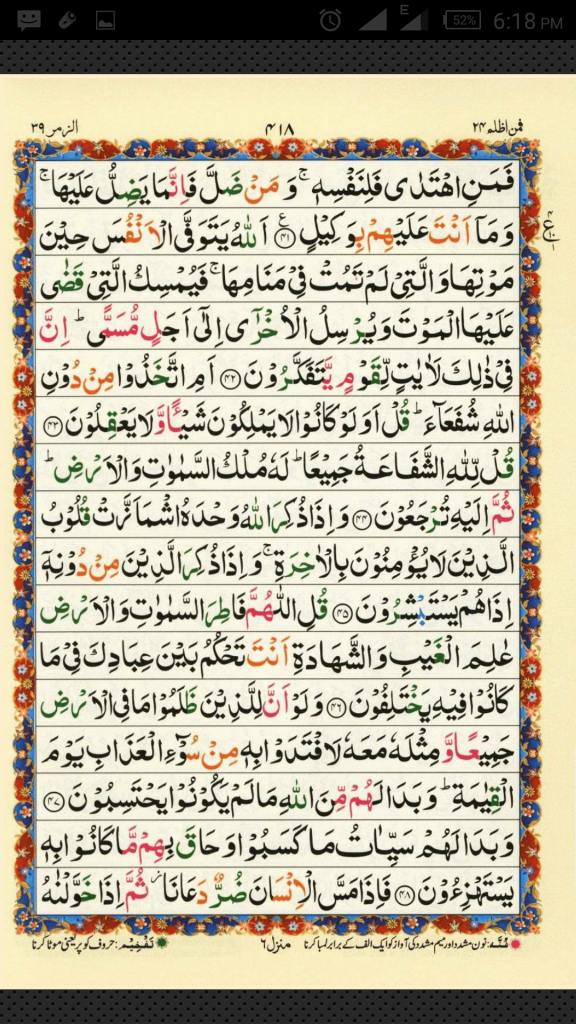 E
52%
6:18 PM
فمن اظلم ٢٤
٤١٨
الزمر ٣٩
فَمَنِ اهْتَدٰى فَلِنَفْسِهٖ ۚ وَ مَنْ ضَلَّ فَاِنَّمَا يَضِلُّ عَلَيْهَا ۚ
وَ مَاۤ اَنْتَ عَلَيْهِمْ بِوَكِيْلٍ ﴿٤١﴾ اَللّٰهُ يَتَوَفَّى الْاَنْفُسَ حِيْنَ
مَوْتِهَا وَ الَّتِيْ لَمْ تَمُتْ فِيْ مَنَامِهَا ۚ فَيُمْسِكُ الَّتِيْ قَضٰى
عَلَيْهَا الْمَوْتَ وَ يُرْسِلُ الْاُخْرٰۤى اِلٰۤى اَجَلٍ مُّسَمًّى ؕ اِنَّ
فِيْ ذٰلِكَ لَاٰيٰتٍ لِّقَوْمٍ يَّتَفَكَّرُوْنَ ﴿٤٢﴾ اَمِ اتَّخَذُوْا مِنْ دُوْنِ
اللّٰهِ شُفَعَآءَ ؕ قُلْ اَوَ لَوْ كَانُوْا لَا يَمْلِكُوْنَ شَيْـًٔا وَّ لَا يَعْقِلُوْنَ ﴿٤٣﴾
قُلْ لِّلّٰهِ الشَّفَاعَةُ جَمِيْعًا ؕ لَهٗ مُلْكُ السَّمٰوٰتِ وَ الْاَرْضِ ؕ
ثُمَّ اِلَيْهِ تُرْجَعُوْنَ ﴿٤٤﴾ وَ اِذَا ذُكِرَ اللّٰهُ وَحْدَهُ اشْمَاَزَّتْ قُلُوْبُ
الَّذِيْنَ لَا يُؤْمِنُوْنَ بِالْاٰخِرَةِ ۚ وَ اِذَا ذُكِرَ الَّذِيْنَ مِنْ دُوْنِهٖۤ
اِذَا هُمْ يَسْتَبْشِرُوْنَ ﴿٤٥﴾ قُلِ اللّٰهُمَّ فَاطِرَ السَّمٰوٰتِ وَ الْاَرْضِ
عٰلِمَ الْغَيْبِ وَ الشَّهَادَةِ اَنْتَ تَحْكُمُ بَيْنَ عِبَادِكَ فِيْ مَا
كَانُوْا فِيْهِ يَخْتَلِفُوْنَ ﴿٤٦﴾ وَ لَوْ اَنَّ لِلَّذِيْنَ ظَلَمُوْا مَا فِي الْاَرْضِ
جَمِيْعًا وَّ مِثْلَهٗ مَعَهٗ لَافْتَدَوْا بِهٖ مِنْ سُوْٓءِ الْعَذَابِ يَوْمَ
الْقِيٰمَةِ ؕ وَ بَدَا لَهُمْ مِّنَ اللّٰهِ مَا لَمْ يَكُوْنُوْا يَحْتَسِبُوْنَ ﴿٤٧﴾
وَ بَدَا لَهُمْ سَيِّاٰتُ مَا كَسَبُوْا وَ حَاقَ بِهِمْ مَّا كَانُوْا بِهٖ
يَسْتَهْزِءُوْنَ ﴿٤٨﴾ فَاِذَا مَسَّ الْاِنْسَانَ ضُرٌّ دَعَانَا ؗ ثُمَّ اِذَا خَوَّلْنٰهُ
غُنَّہ: نون مشدد اور میم مشدد کی آواز کو ایک الف کے برابر لمبا کرنا
منزل ٦
تَفْخِیْم: حروف کو پر یعنی موٹا کرنا